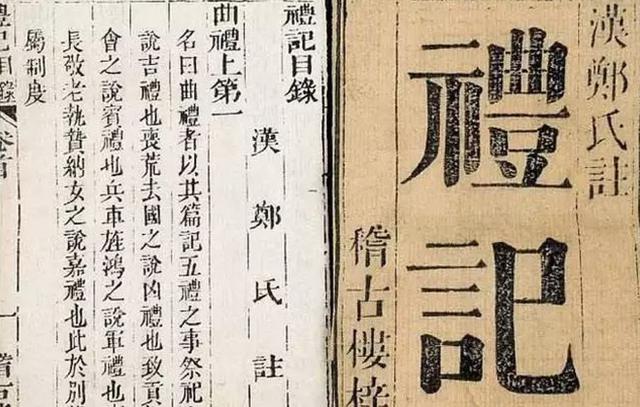 漢鄭氏註
禮記
稽古樓梓
禮記目錄
漢鄭氏註
曲禮上第一
名曰曲禮者以其篇記五禮之事祭祀
說吉禮也喪荒去國之說凶禮也致貢
會之說賓禮也兵車旌鴻之說軍禮也
長敬老執贄納女之說嘉禮也此於別
屬制度
禮記目錄 卷首 一 稽古